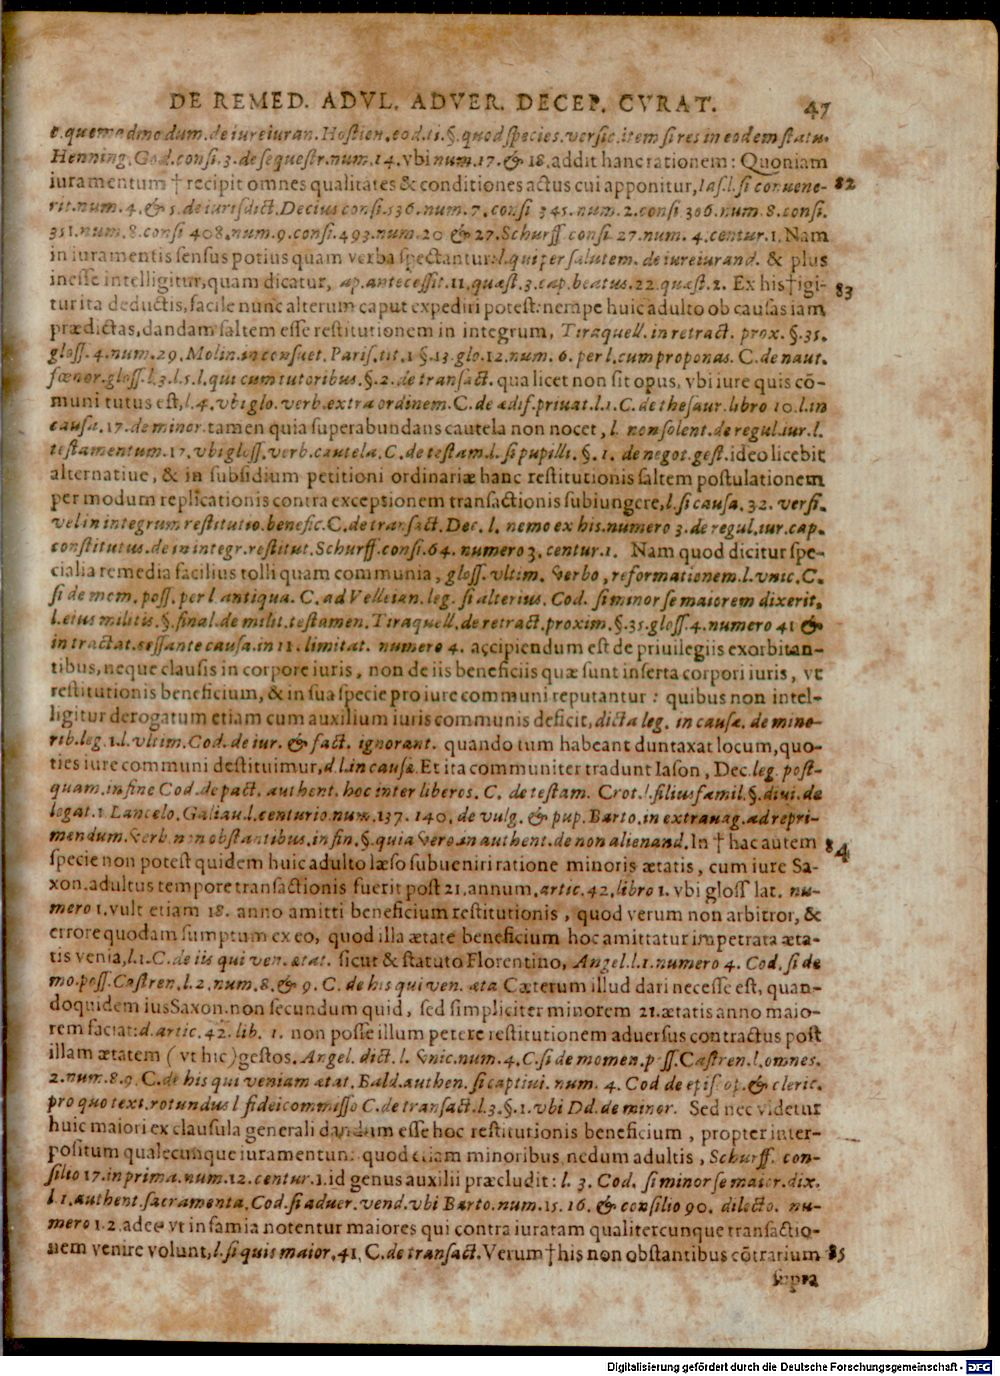 DE REMED. ADVL. ADVER. DECEP. CVRAT. 47
c. quemadmodum. de iureiuran. Hostien. eod. ti. §. quod species. versic. item si res in eodem statu.
Henning. God. consi. 3. de sequestr. num. 14. vbi num. 17. & 18. addit hanc rationem: Quoniam
iuramentum † recipit omnes qualitates & conditiones actus cui apponitur, Ias. l. si conuene- 82
rit. num. 4. & 5. de iurisdict. Decius consi. 536. num. 7. consi 345. num. 2. consi 306. num. 8. consi.
351. num. 8. consi 408. num. 9. consi. 493. num. 20 & 27. Schurff consi. 27. num. 4. centur. 1. Nam
in iuramentis sensus potius quam verba spectantur: l. qui per salutem. de iureiurand. & plus
inesse intelligitur, quam dicatur, ap. antecessit. 11. quæst. 3. cap. beatus. 22. quæst. 2. Ex his † igi- 83
tur ita deductis, facile nunc alterum caput expediri potest: nempe huic adulto ob causas iam
prædictas, dandam saltem esse restitutionem in integrum, Tiraquell. in retract. prox. §. 35.
gloss. 4. num. 29. Molin. in consuet. Paris. tit. 1 §. 13. glo. 12. num. 6. per l. cum proponas. C. de naut.
fœnor. gloss. l. 3. l. 5. l. qui cum tutoribus. §. 2. de transact. qua licet non sit opus, vbi iure quis cō-
muni tutus est, l. 4. vbi glo. verb. extra ordinem. C. de ædif. priuat. l. 1. C. de thesaur. libro 10. l. in
causa. 17. de minor. tamen quia superabundans cautela non nocet, l. non solent. de regul. iur. l.
testamentum. 17. vbi gloss. verb. cautela. C. de testam. l. si pupilli. §. 1. de negot. gest. ideo licebit
alternatiue, & in subsidium petitioni ordinariæ hanc restitutionis saltem postulationem
per modum replicationis contra exceptionem transactionis subiungere, l. si causa. 32. versi.
vel in integrum restitutio. benefic. C. de transact. Dec. l. nemo ex his. numero 3. de regul. iur. cap.
constitutus. de in integr. restitut. Schurff. consi. 64. numero 3. centur. 1. Nam quod dicitur spe-
cialia remedia facilius tolli quam communia, gloss. vltim. verbo, reformationem. l. vnic. C.
si de mom. poss. per l. antiqua. C. ad Velleian. leg. si alterius. Cod. si minor se maiorem dixerit.
l. eius militis. §. final. de milit. testamen. Tiraquell. de retract. proxim. §. 35. gloss. 4. numero 41 &
in tractat. cessante causa. in 11. limitat. numero 4. accipiendum est de priuilegiis exorbitan-
tibus, neque clausis in corpore iuris, non de iis beneficiis quæ sunt inserta corpori iuris, vt
restitutionis beneficium, & in sua specie pro iure communi reputantur: quibus non intel-
ligitur derogatum etiam cum auxilium iuris communis deficit, dicta leg. in causæ. de mino-
rib. leg. 1. l. vltim. Cod. de iur. & fact. ignorant. quando tum habeant duntaxat locum, quo-
ties iure communi destituimur, d. l. in causæ. Et ita communiter tradunt Iason, Dec. leg. post-
quam. in fine Cod. de pact. authent. hoc inter liberos. C. de testam. Crot. l. filiusfamil. §. diui. de
legat. 1 Lancelo. Galiau. l. centurio. num. 137. 140. de vulg. & pup. Barto. in extrauag. ad repri-
mendum. verb. non obstantibus. in fin. §. quia vero. in authent. de non alienand. In † hac autem 84
specie non potest quidem huic adulto læso subueniri ratione minoris ætatis, cum iure Sa-
xon. adultus tempore transactionis fuerit post 21. annum, artic. 42. libro 1. vbi gloss lat. nu-
mero 1. vult etiam 18. anno amitti beneficium restitutionis, quod verum non arbitror, &
errore quodam sumptum ex eo, quod illa ætate beneficium hoc amittatur impetrata æta-
tis venia, l. 1. C. de iis qui ven. ætat. sicut & statuto Florentino, Angel. l. 1. numero 4. Cod. si de
mo. poss. Castren. l. 2. num. 8. & 9. C. de his qui ven. æta Cæterum illud dari necesse est, quan-
doquidem ius Saxon. non secundum quid, sed simpliciter minorem 21. ætatis anno maio-
rem faciat: d. artic. 42. lib. 1. non posse illum petere restitutionem aduersus contractus post
illam ætatem (vt hic) gestos. Angel. dict. l. vnic. num. 4. C. si de momen. poss. Castren. l. omnes.
2. num. 8. 9. C. de his qui veniam ætat. Bald. authen. si captiui. num. 4. Cod de episcop. & cleric.
pro quo text. rotundus l fideicommisso C. de transact. l. 3. §. 1. vbi Dd. de minor. Sed nec videtur
huic maiori ex clausula generali dandum esse hoc restitutionis beneficium, propter inter-
positum qualecunque iuramentum: quod etiam minoribus, nedum adultis, Schurff. con-
silio 17. in prima. num. 12. centur. 1. id genus auxilii præcludit: l. 3. Cod. si minor se maior. dix.
l 1. authent. sacramenta. Cod. si aduer. vend. vbi Barto. num. 15. 16. & consilio 90. dilecto. nu-
mero 1. 2. adeo vt infamia notentur maiores qui contra iuratam qualitercunque transactio-
nem venire volunt, l. si quis maior. 41. C. de transact. Verum † his non obstantibus cōtrarium 85
supra
Digitalisierung gefördert durch die Deutsche Forschungsgemeinschaft - DFG